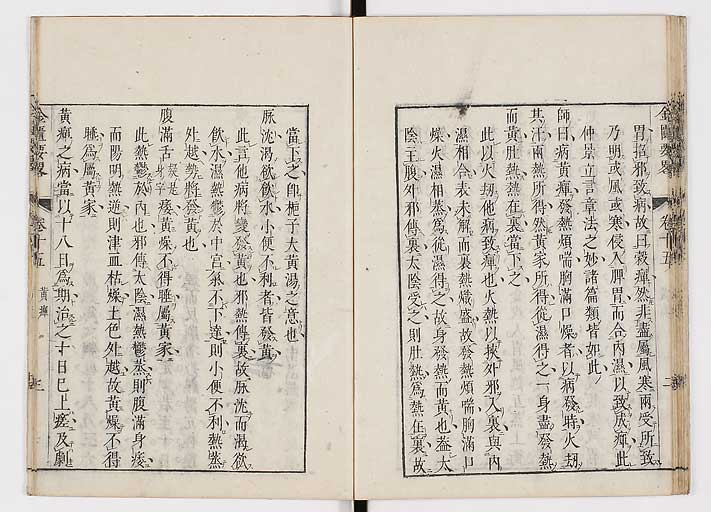 胃招邪致病故曰穀癉然非盡屬風寒兩受所致
乃明或風或寒侵入脾胃而合內濕以致成癉此
仲景立言章法之妙諸篇類皆如此
師曰病黃癉發熱煩喘胸滿口燥者以病發時火劫
其汗兩熱所得然黃家所得從濕得之一身盡發熱
而黃肚熱熱在裏當下之
此以火劫他病致癉也火熱以挾外邪入裏與內
濕相合表未解而裏熱熾盛故發熱煩喘胸滿口
燥火濕相蒸為從濕得之故身發熱而黃也蓋太
陰主腹外邪傳裏太陰受之則肚熱為熱在裏故
金匱要畧 卷十五 二
當下之卽梔子大黃湯之意也
脉沈渴欲飲水小便不利者皆發黃
此言他病將變發黃也邪熱傳裏故脉沈而渴欲
飲水濕熱鬱於中宮氣不下達則小便不利熱蒸
外越勢將發黃也
腹滿舌疑是身字痿黃燥不得睡屬黃家
此熱鬱於內也邪傳太陰濕熱鬱蒸則腹滿身痿
而陽明熱逆則津血枯燥土色外越故黃燥不得
睡為屬黃家
黃癉之病當以十八日為期治之十日已上瘥反劇
金匱要畧 卷十五 黃癉 三